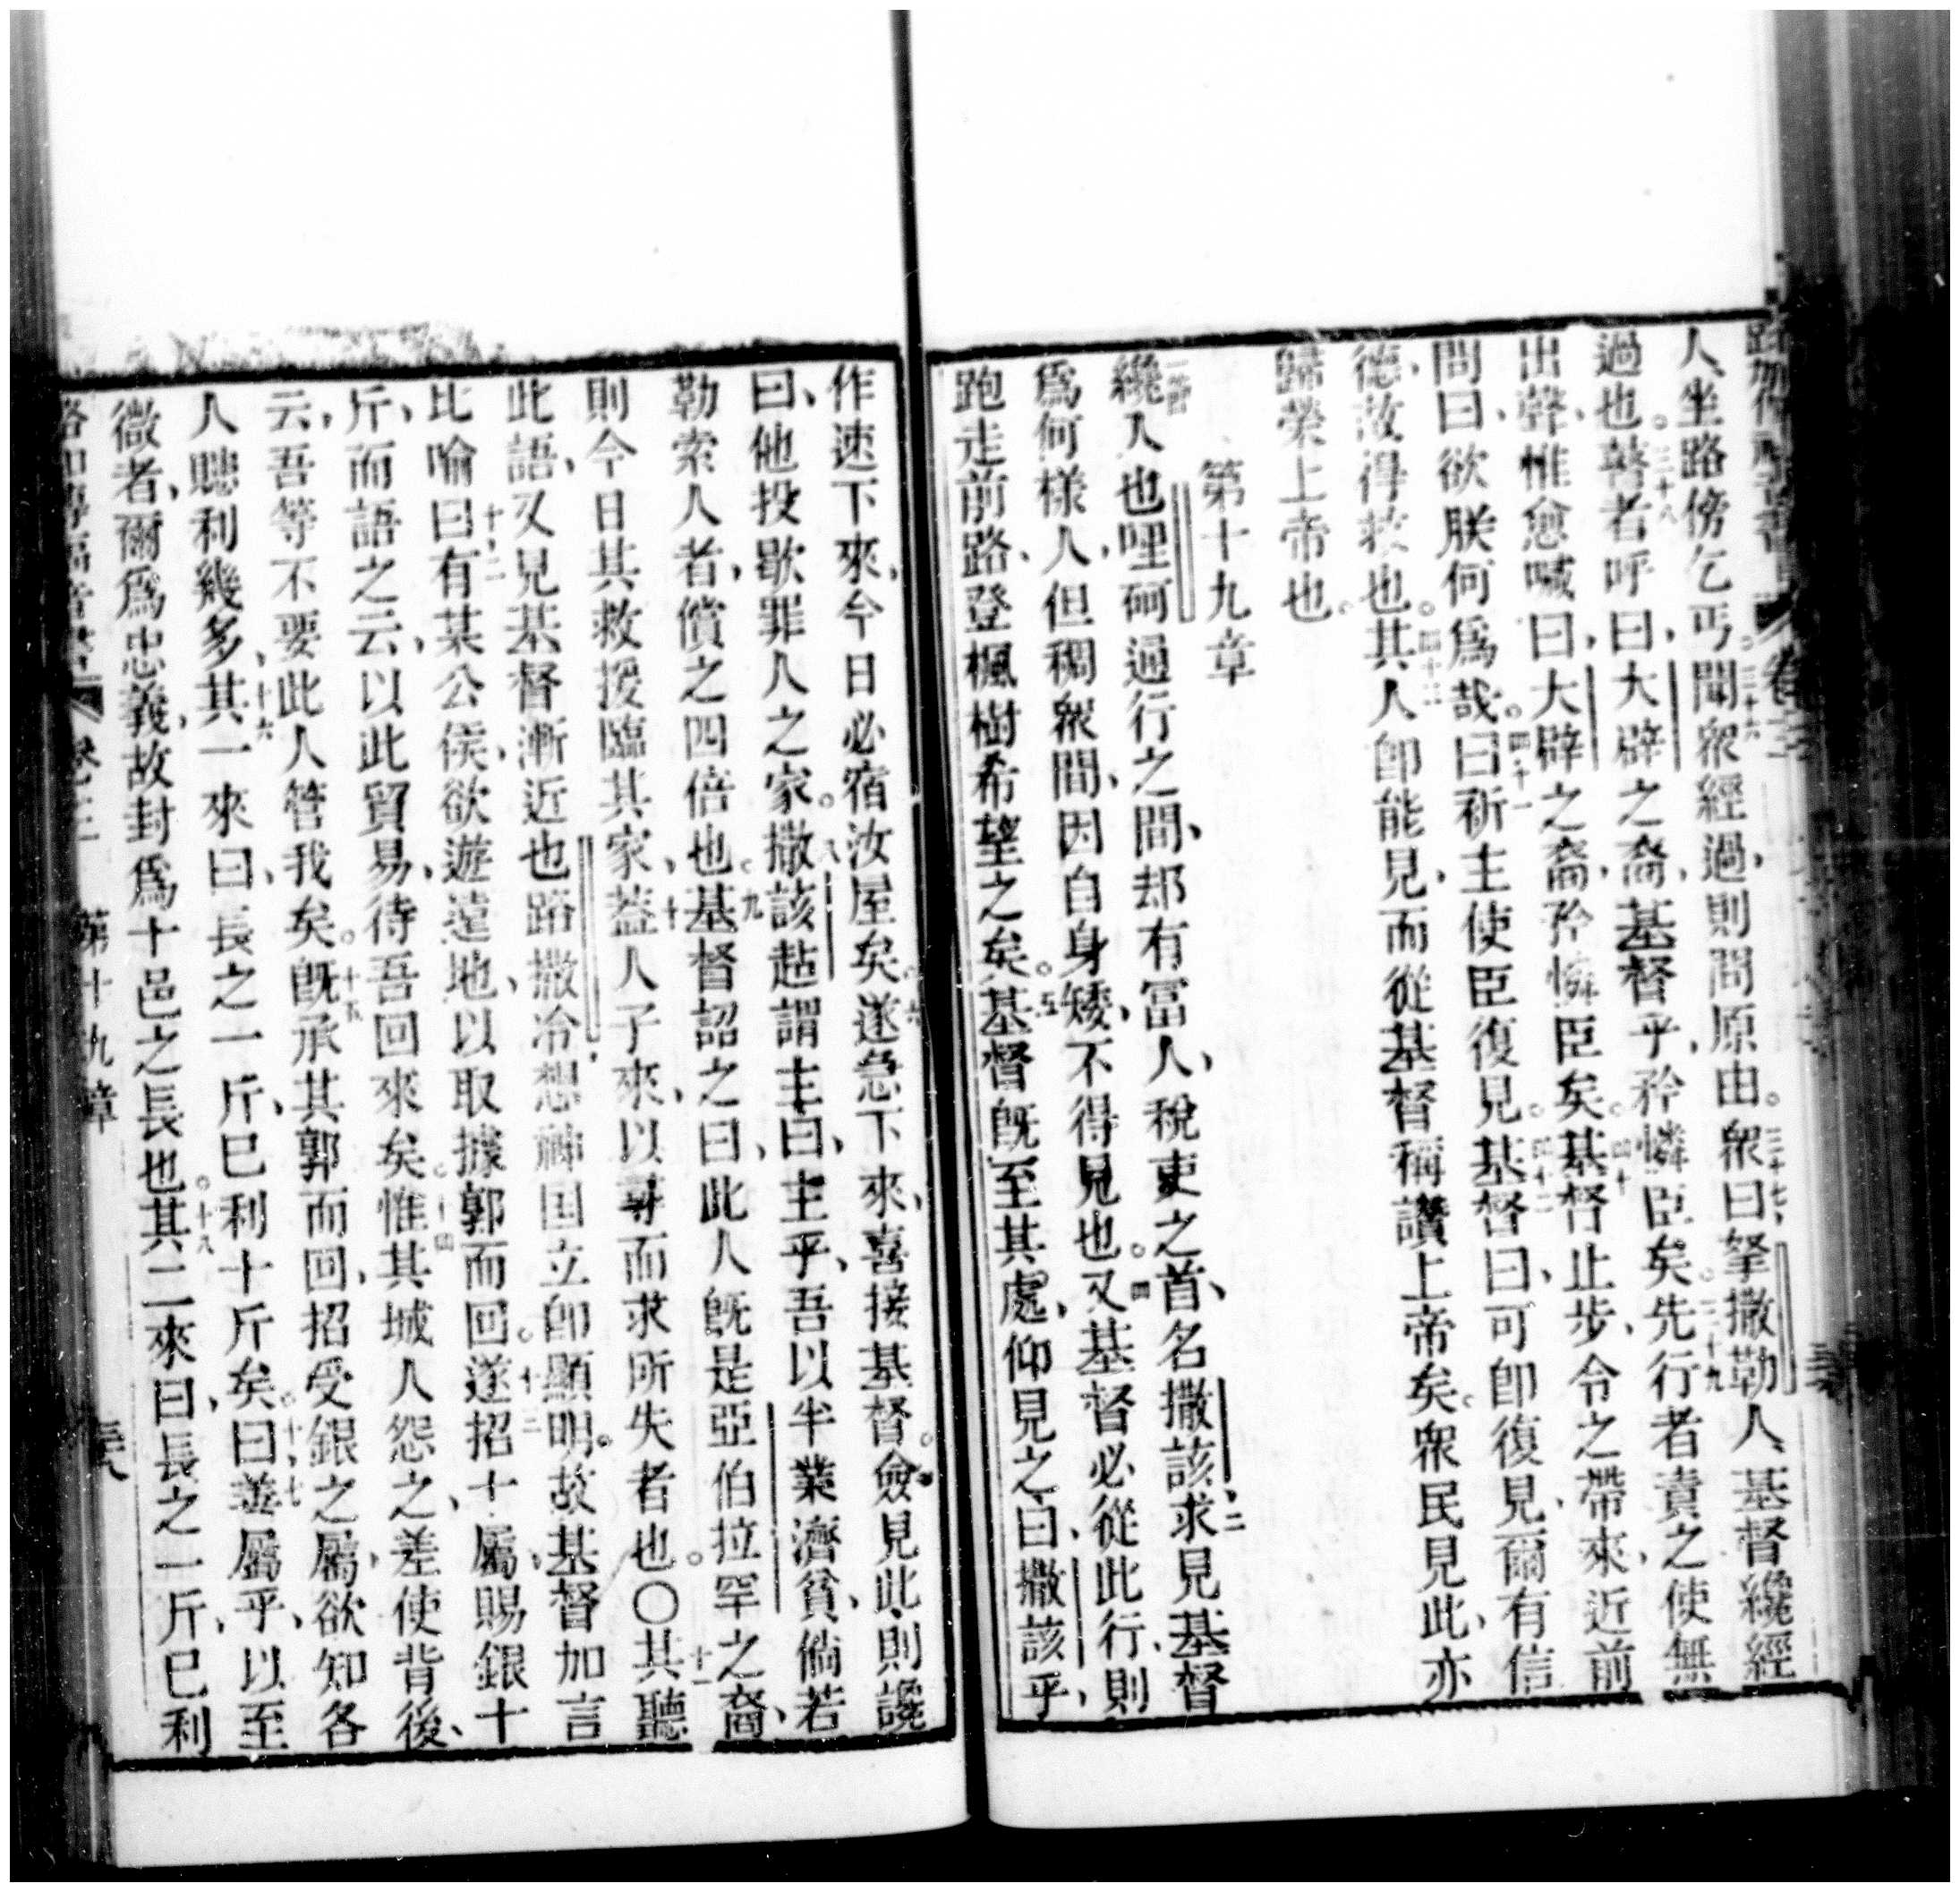 路加傳福音書 卷三
人坐路傍乞丐。三十六聞眾經過，則問原由。三十七眾曰，拏撒勒人、基督纔經
過也。三十八瞽者呼曰，大辟之裔，基督乎，矜憐臣矣。三十九先行者責之使無
出聲，惟愈喊曰，大辟之裔，矜憐臣矣。四十基督止步，令之帶來，近前
問曰，欲朕何爲哉。四十一曰，祈主使臣復見。四十二基督曰，可卽復見，爾有信
德，故得救也。四十三其人卽能見，而從基督稱讚上帝矣。眾民見此，亦
歸榮上帝也。
第十九章
纔入也哩砢通行之間，却有富人，稅吏之首，名撒該，二求見基督
爲何樣人，但稠眾間，因自身矮，不得見也。四又基督必從此行，則
跑走前路，登楓樹希望之矣。五基督既至其處，仰見之曰，撒該乎，
作速下來，今日必宿汝屋矣。六遂急下來，喜接基督。僉見此，則讒
曰，他投歇罪人之家。八撒該起謂主曰，主乎，吾以半業濟貧，倘若
勒索人者，償之四倍也。九基督詔之曰，此人既是亞伯拉罕之裔，
則今日其救援臨其家，十蓋人子來，以尋而求所失者也。〇十一其聽
此語，又見基督漸近也路撒冷，想神国立卽顯明，故基督加言
比喻曰，十二有某公侯，欲遊遠地，以取據郭而回。十三遂招十屬，賜銀十
斤，而語之云，以此貿易，待吾回來矣。十四惟其城人怨之，差使背後，
云，吾等不要此人管我矣。十五既承其郭而回，招受銀之屬，欲知各
人聽利幾多，十六其一來曰，長之一斤，已利十斤矣。十七曰，善屬乎，以至
微者，爾爲忠義，故封爲十邑之長也。十八其二來曰，長之一斤，已利
路加傳福音書 卷三 第十九章